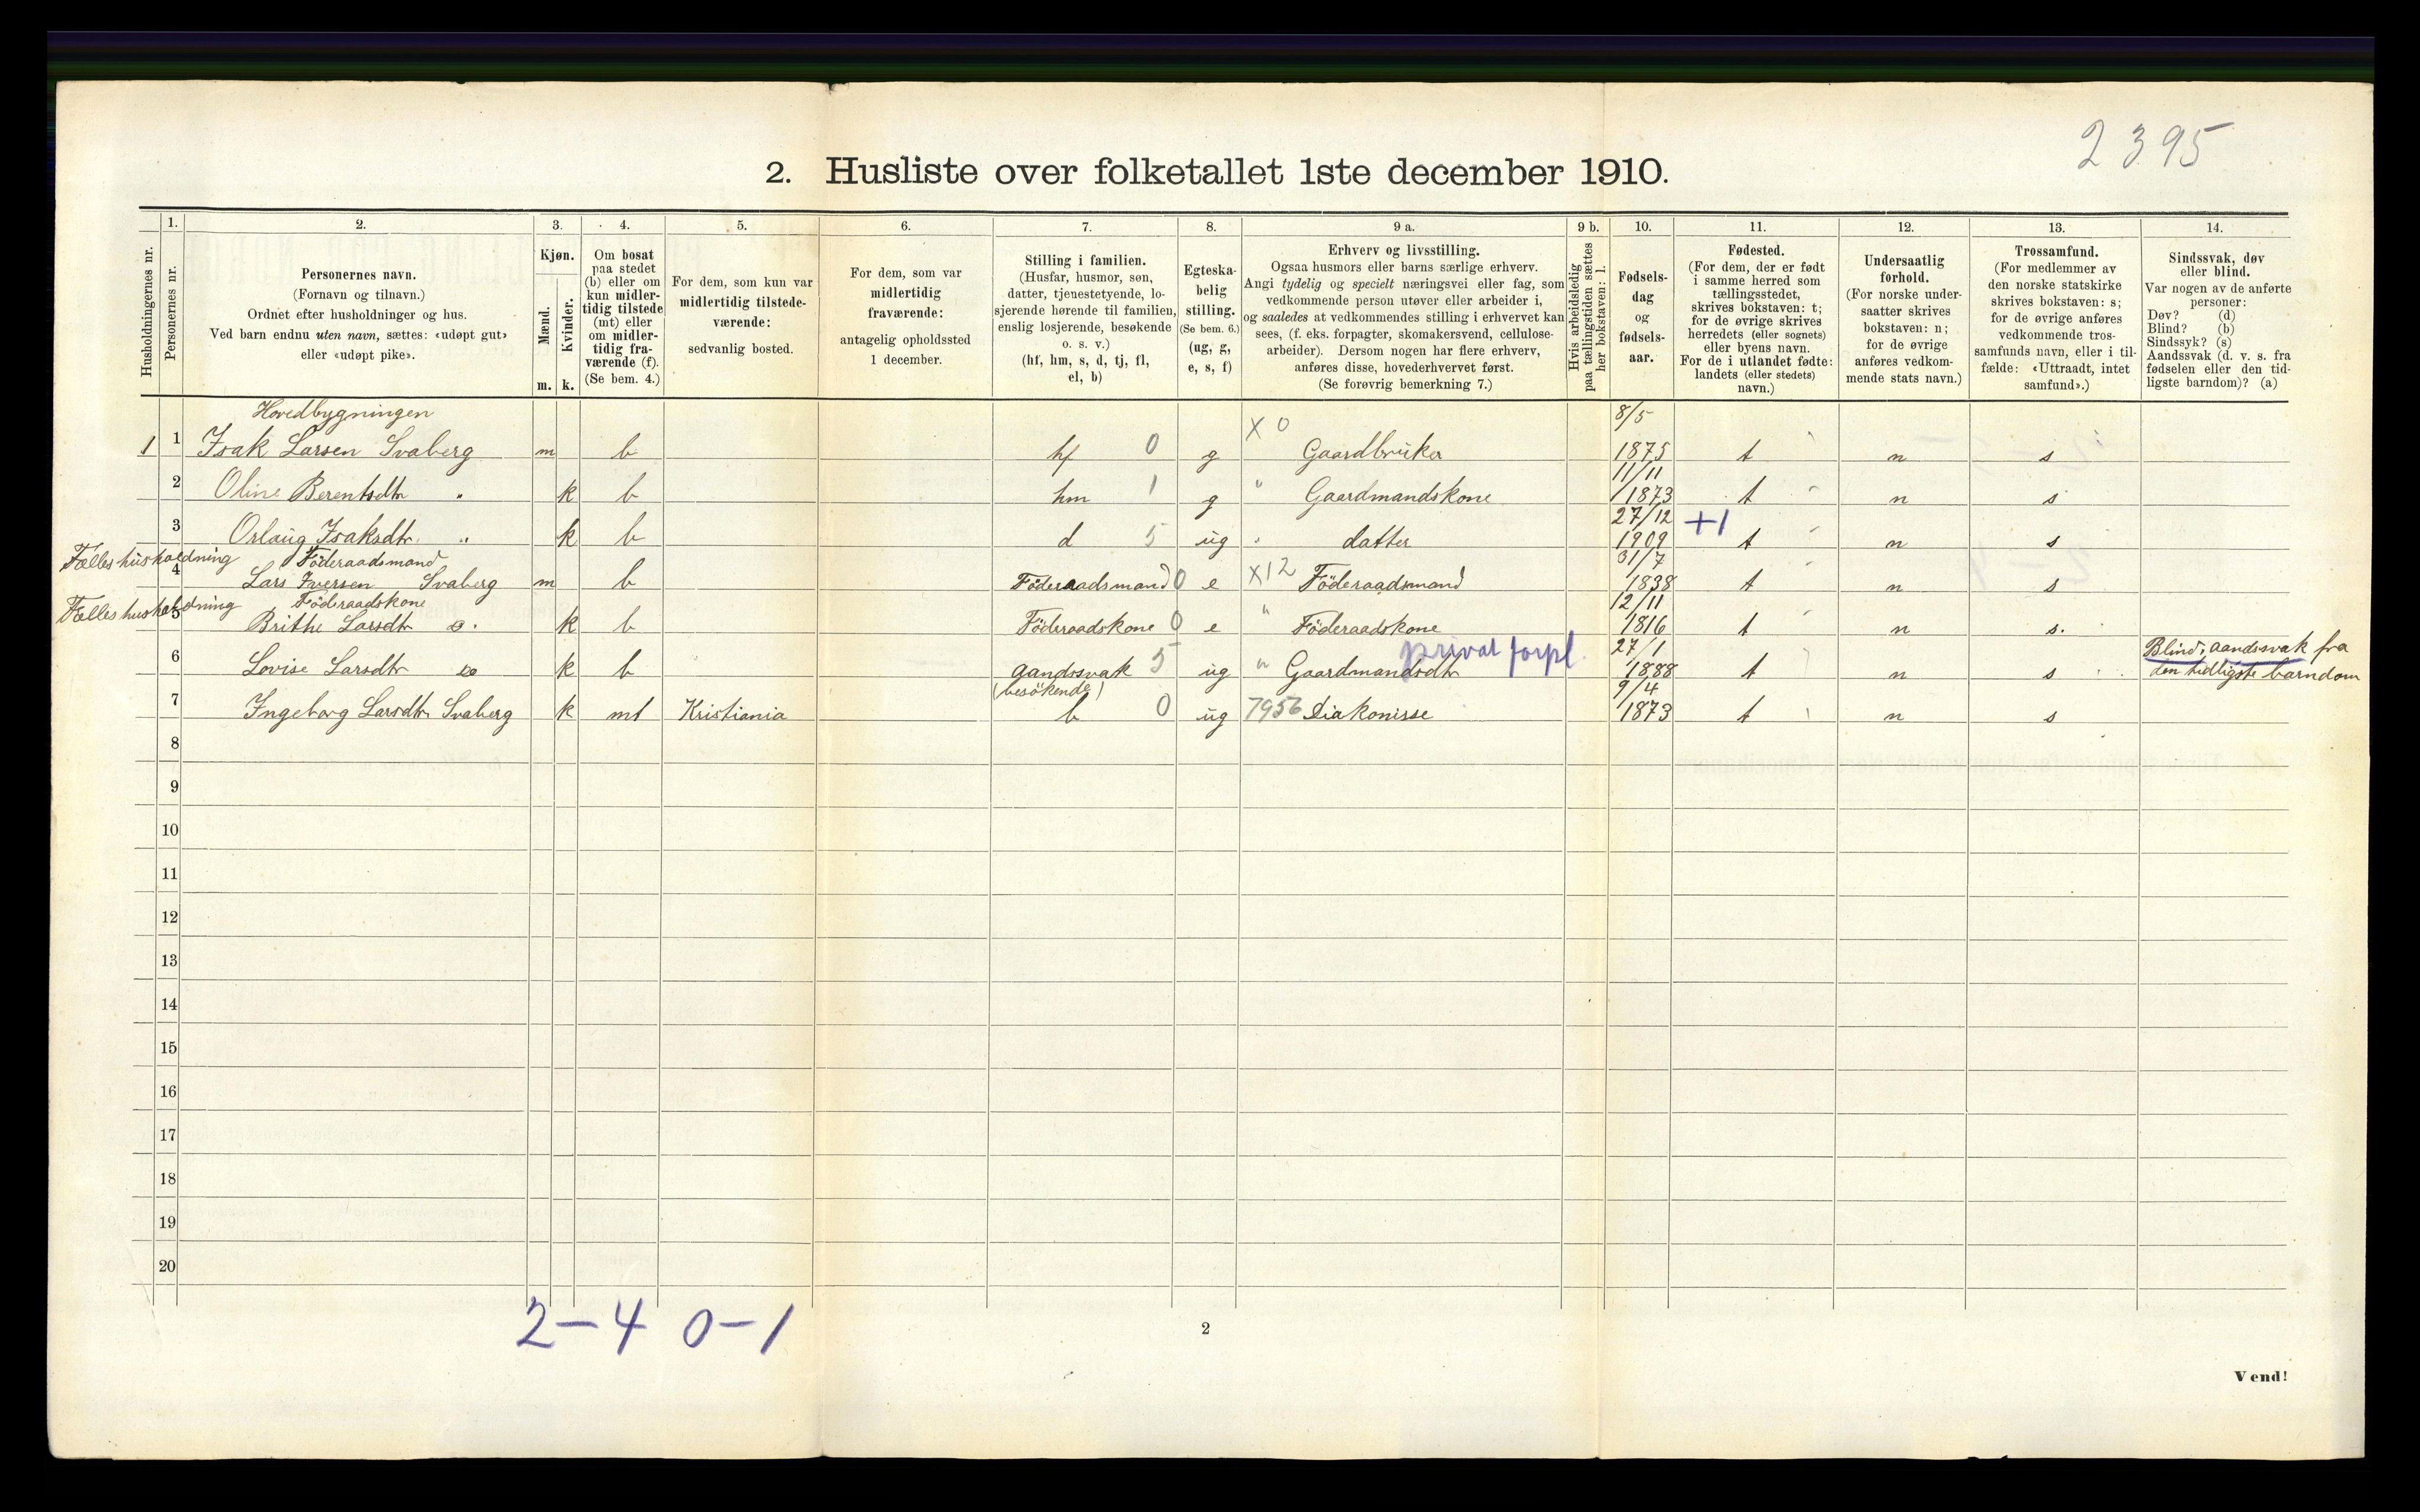 2395
2. Husliste over folketallet 1ste december 1910.
Husholdningernes nr.
1. Personernes nr.
2. Personernes navn.
(Fornavn og tilnavn.)
Ordnet efter husholdninger og hus.
Ved barn endnu uten navn, sættes: «udøpt gut»
eller «udøpt pike».
3. Kjøn.
Mænd. Kvinder.
m. k.
4. Om bosat
paa stedet
(b) eller om
kun midler-
tidig tilstede
(mt) eller
om midler-
tidig fra-
værende (f).
(Se bem. 4.)
5. For dem, som kun var
midlertidig tilstede-
værende:
sedvanlig bosted.
6. For dem, som var
midlertidig
fraværende:
antagelig opholdssted
1 december.
7. Stilling i familien.
(Husfar, husmor, søn,
datter, tjenestetyende, lo-
sjerende hørende til familien,
enslig losjerende, besøkende
o. s. v.)
(hf, hm, s, d, tj, fl,
el, b)
8. Egteska-
belig
stilling.
(Se bem. 6.)
(ug, g,
e, s, f)
9 a. Erhverv og livsstilling.
Ogsaa husmors eller barns særlige erhverv.
Angi tydelig og specielt næringsvei eller fag, som
vedkommende person utøver eller arbeider i,
og saaledes at vedkommendes stilling i erhvervet kan
sees, (f. eks. forpagter, skomakersvend, cellulose-
arbeider). Dersom nogen har flere erhverv,
anføres disse, hovederhvervet først.
(Se forøvrig bemerkning 7.)
9 b. Hvis arbeidsledig
paa tællingstiden sættes
her bokstaven: l.
10. Fødsels-
dag
og
fødsels-
aar.
11. Fødested.
(For dem, der er født
i samme herred som
tællingsstedet,
skrives bokstaven: t;
for de øvrige skrives
herredets (eller sognets)
eller byens navn.
For de i utlandet fødte:
landets (eller stedets)
navn.)
12. Undersaatlig
forhold.
(For norske under-
saatter skrives
bokstaven: n;
for de øvrige
anføres vedkom-
mende stats navn.)
13. Trossamfund.
(For medlemmer av
den norske statskirke
skrives bokstaven: s;
for de øvrige anføres
vedkommende tros-
samfunds navn, eller i til-
fælde: «Uttraadt, intet
samfund».)
14. Sindssvak, døv
eller blind.
Var nogen av de anførte
personer:
Døv? (d)
Blind? (b)
Sindssyk? (s)
Aandssvak (d. v. s. fra
fødselen eller den tid-
ligste barndom)? (a)
Hovedbygningen 8/5
1 1 Isak Larsen Svaberg m b hf 0 g X 0 Gaardbruker 1875 t n s
11/11
2 Oline Berentsdtr " k b hm 1 g " Gaardmandskone 1873 t n s
27/12 +1
3 Orlaug Isaksdtr. " k b d 5 ug " datter 1909 t n s
Fælles husholdning Föderaadsmand 31/7
4 Lars Iversen Svaberg m b Föderaadsmand 0 e X12 Föderaadsmand 1838 t n s
Fælles husholdning Föderaadskone 12/11
5 Brithe Larsdtr do. k b Föderaadskone 0 e " Föderaadskone 1816 t n s.
privat forpl. 27/1 Blind, aandssvak fra
6 Lovise Larsdtr do k b aandssvak 5 ug " Gaardmandsdtr 1888 t n s den tidligste barndom
(besökende) 9/4
7 Ingeborg Larsdtr Svaberg k mt Kristiania b 0 ug 7956 Diakonisse 1873 t n s
8
9
10
11
12
13
14
15
16
17
18
19
20
2-4 0-1
2
Vend!